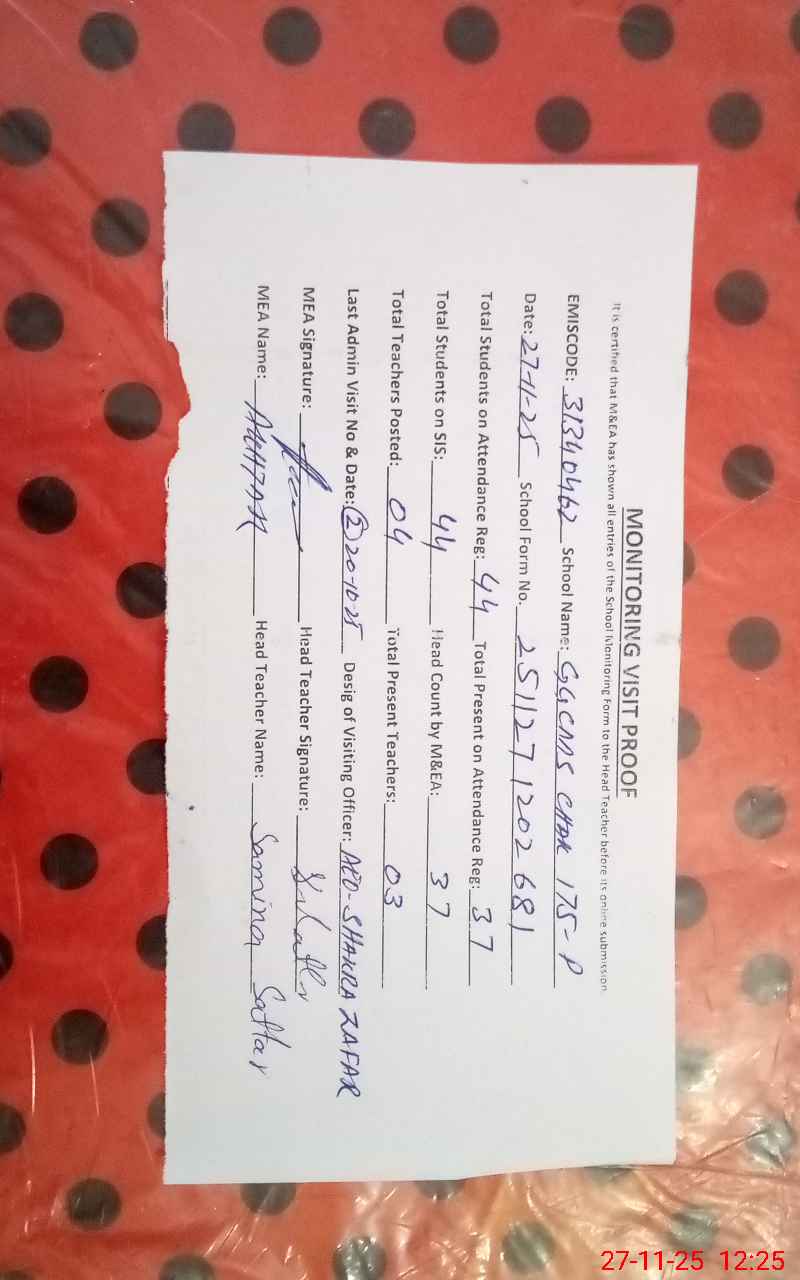 MONITORING VISIT PROOF
It is certified that M&EA has shown all entries of the School Monitoring Form to the Head Teacher before its online submission.
EMISCODE: 31340462 School Name: GGCMS CHAK 175-P
Date: 27-11-25 School Form No. 2511271202681
Total Students on Attendance Reg: 44 Total Present on Attendance Reg: 37
Total Students on SIS: 44 Head Count by M&EA: 37
Total Teachers Posted: 04 Total Present Teachers: 03
Last Admin Visit No & Date: (2) 20-10-25 Desig of Visiting Officer: AEO-SHAKRA ZAFAR
MEA Signature: Head Teacher Signature:
MEA Name: Head Teacher Name: Samina Sattar
27-11-25 12:25